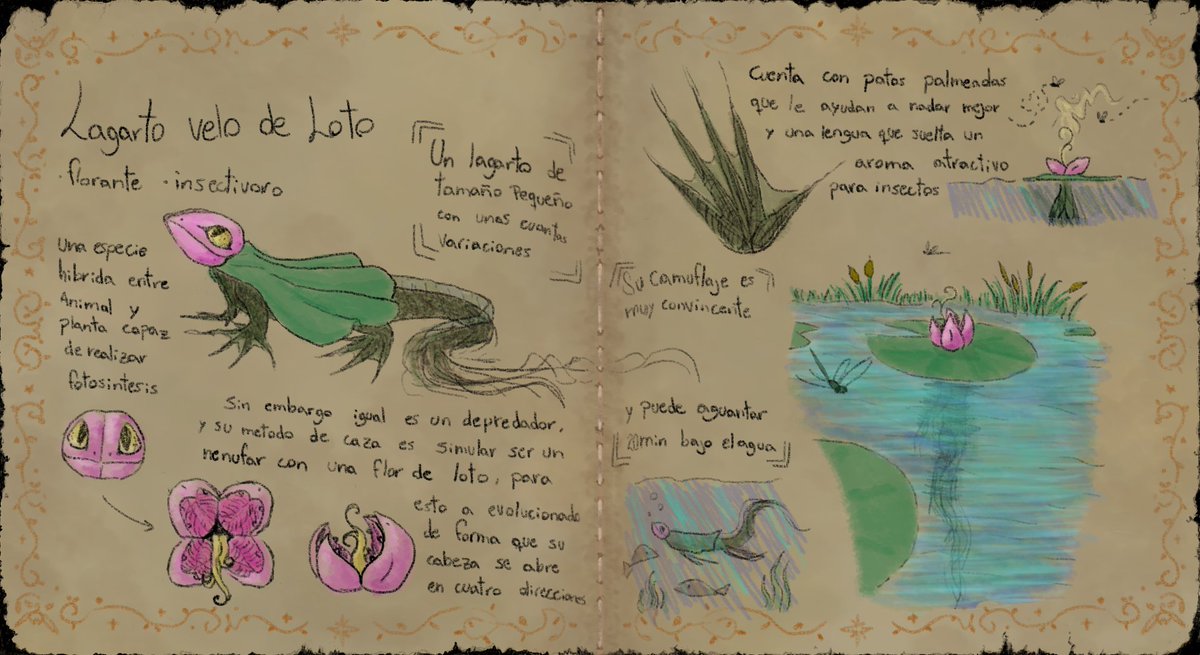 Lagarto velo de Loto
·florante ·insectivoro
Un lagarto de
tamaño Pequeño
con unas cuantas
variaciones
una especie
hibrida entre
Animal y
planta capaz
de realizar
fotosintesis
Sin embargo igual es un depredador,
y su metodo de caza es simular ser un
nenufar con una flor de loto, para
esto a evolucionado
de forma que su
cabeza se abre
en cuatro direcciones
Cuenta con patas palmeadas
que le ayudan a nadar mejor
y una lengua que suelta un
aroma atractivo
para insectos
Su camuflaje es
muy convincente
y puede aguantar
20min bajo el agua